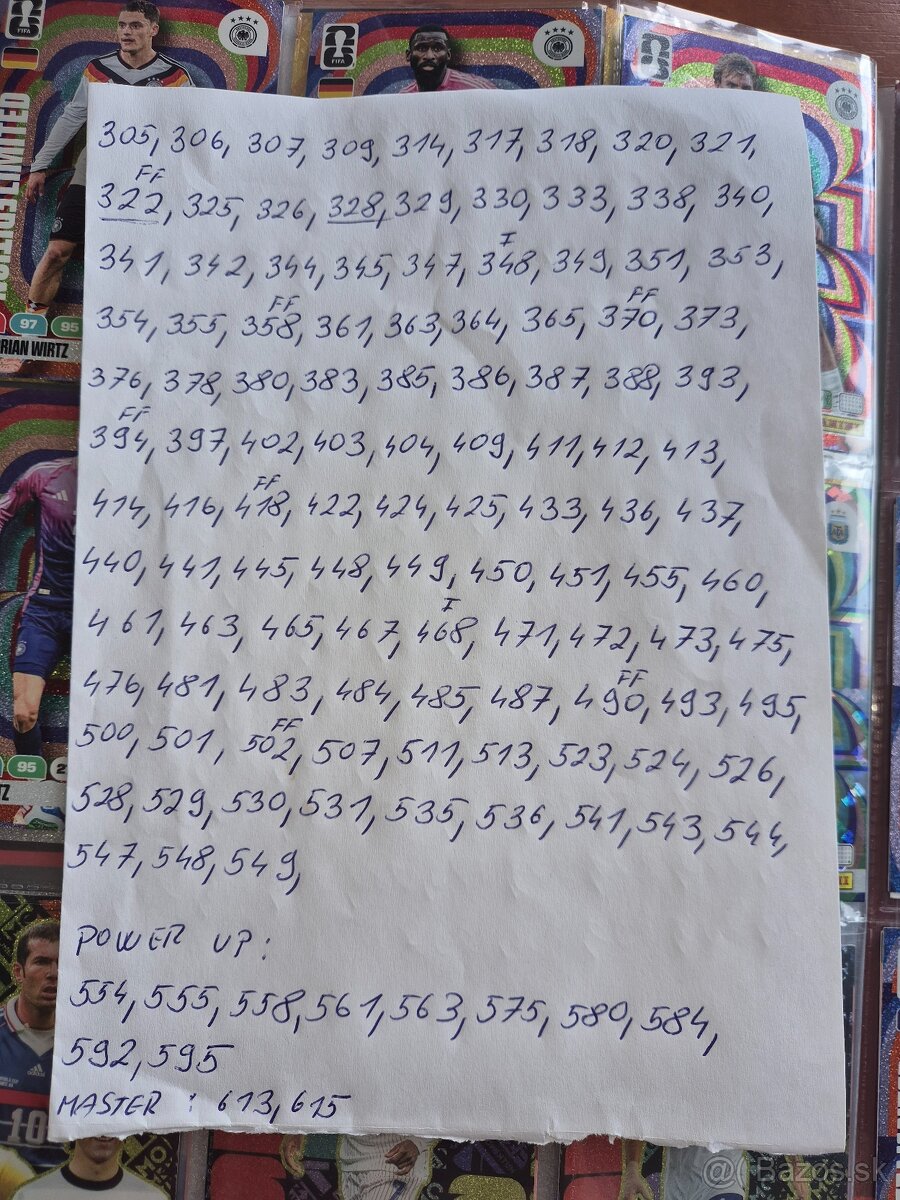 FIFA
FIFA
FIFA
LIMITED
97 95
RIAN WIRTZ
95
305, 306, 307, 309, 314, 317, 318, 320, 321,
FF
322, 325, 326, 328, 329, 330, 333, 338, 340,
I
341, 342, 344, 345, 347, 348, 349, 351, 353,
FF FF
354, 355, 358, 361, 363, 364, 365, 370, 373,
376, 378, 380, 383, 385, 386, 387, 388, 393,
FF
394, 397, 402, 403, 404, 409, 411, 412, 413,
FF
414, 416, 418, 422, 424, 425, 433, 436, 437,
440, 441, 445, 448, 449, 450, 451, 455, 460,
I
461, 463, 465, 467, 468, 471, 472, 473, 475,
FF
476, 481, 483, 484, 485, 487, 490, 493, 495,
FF
500, 501, 502, 507, 511, 513, 523, 524, 526,
528, 529, 530, 531, 535, 536, 541, 543, 544,
547, 548, 549,
POWER UP:
554, 555, 558, 561, 563, 575, 580, 584,
592, 595
MASTER : 613, 615
10
@ Bazos.sk